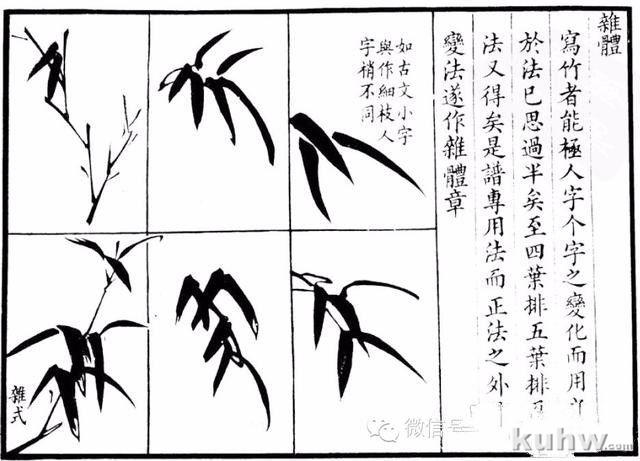 雜體
寫竹者能極人字个字之變化而用
於法已思過半矣至四葉排五葉排
法又得矣是譜專用法而正法之外
變法遂作雜體章
如古文小字
與作細枝人
字梢不同
雜式
微信号
kuhw.com